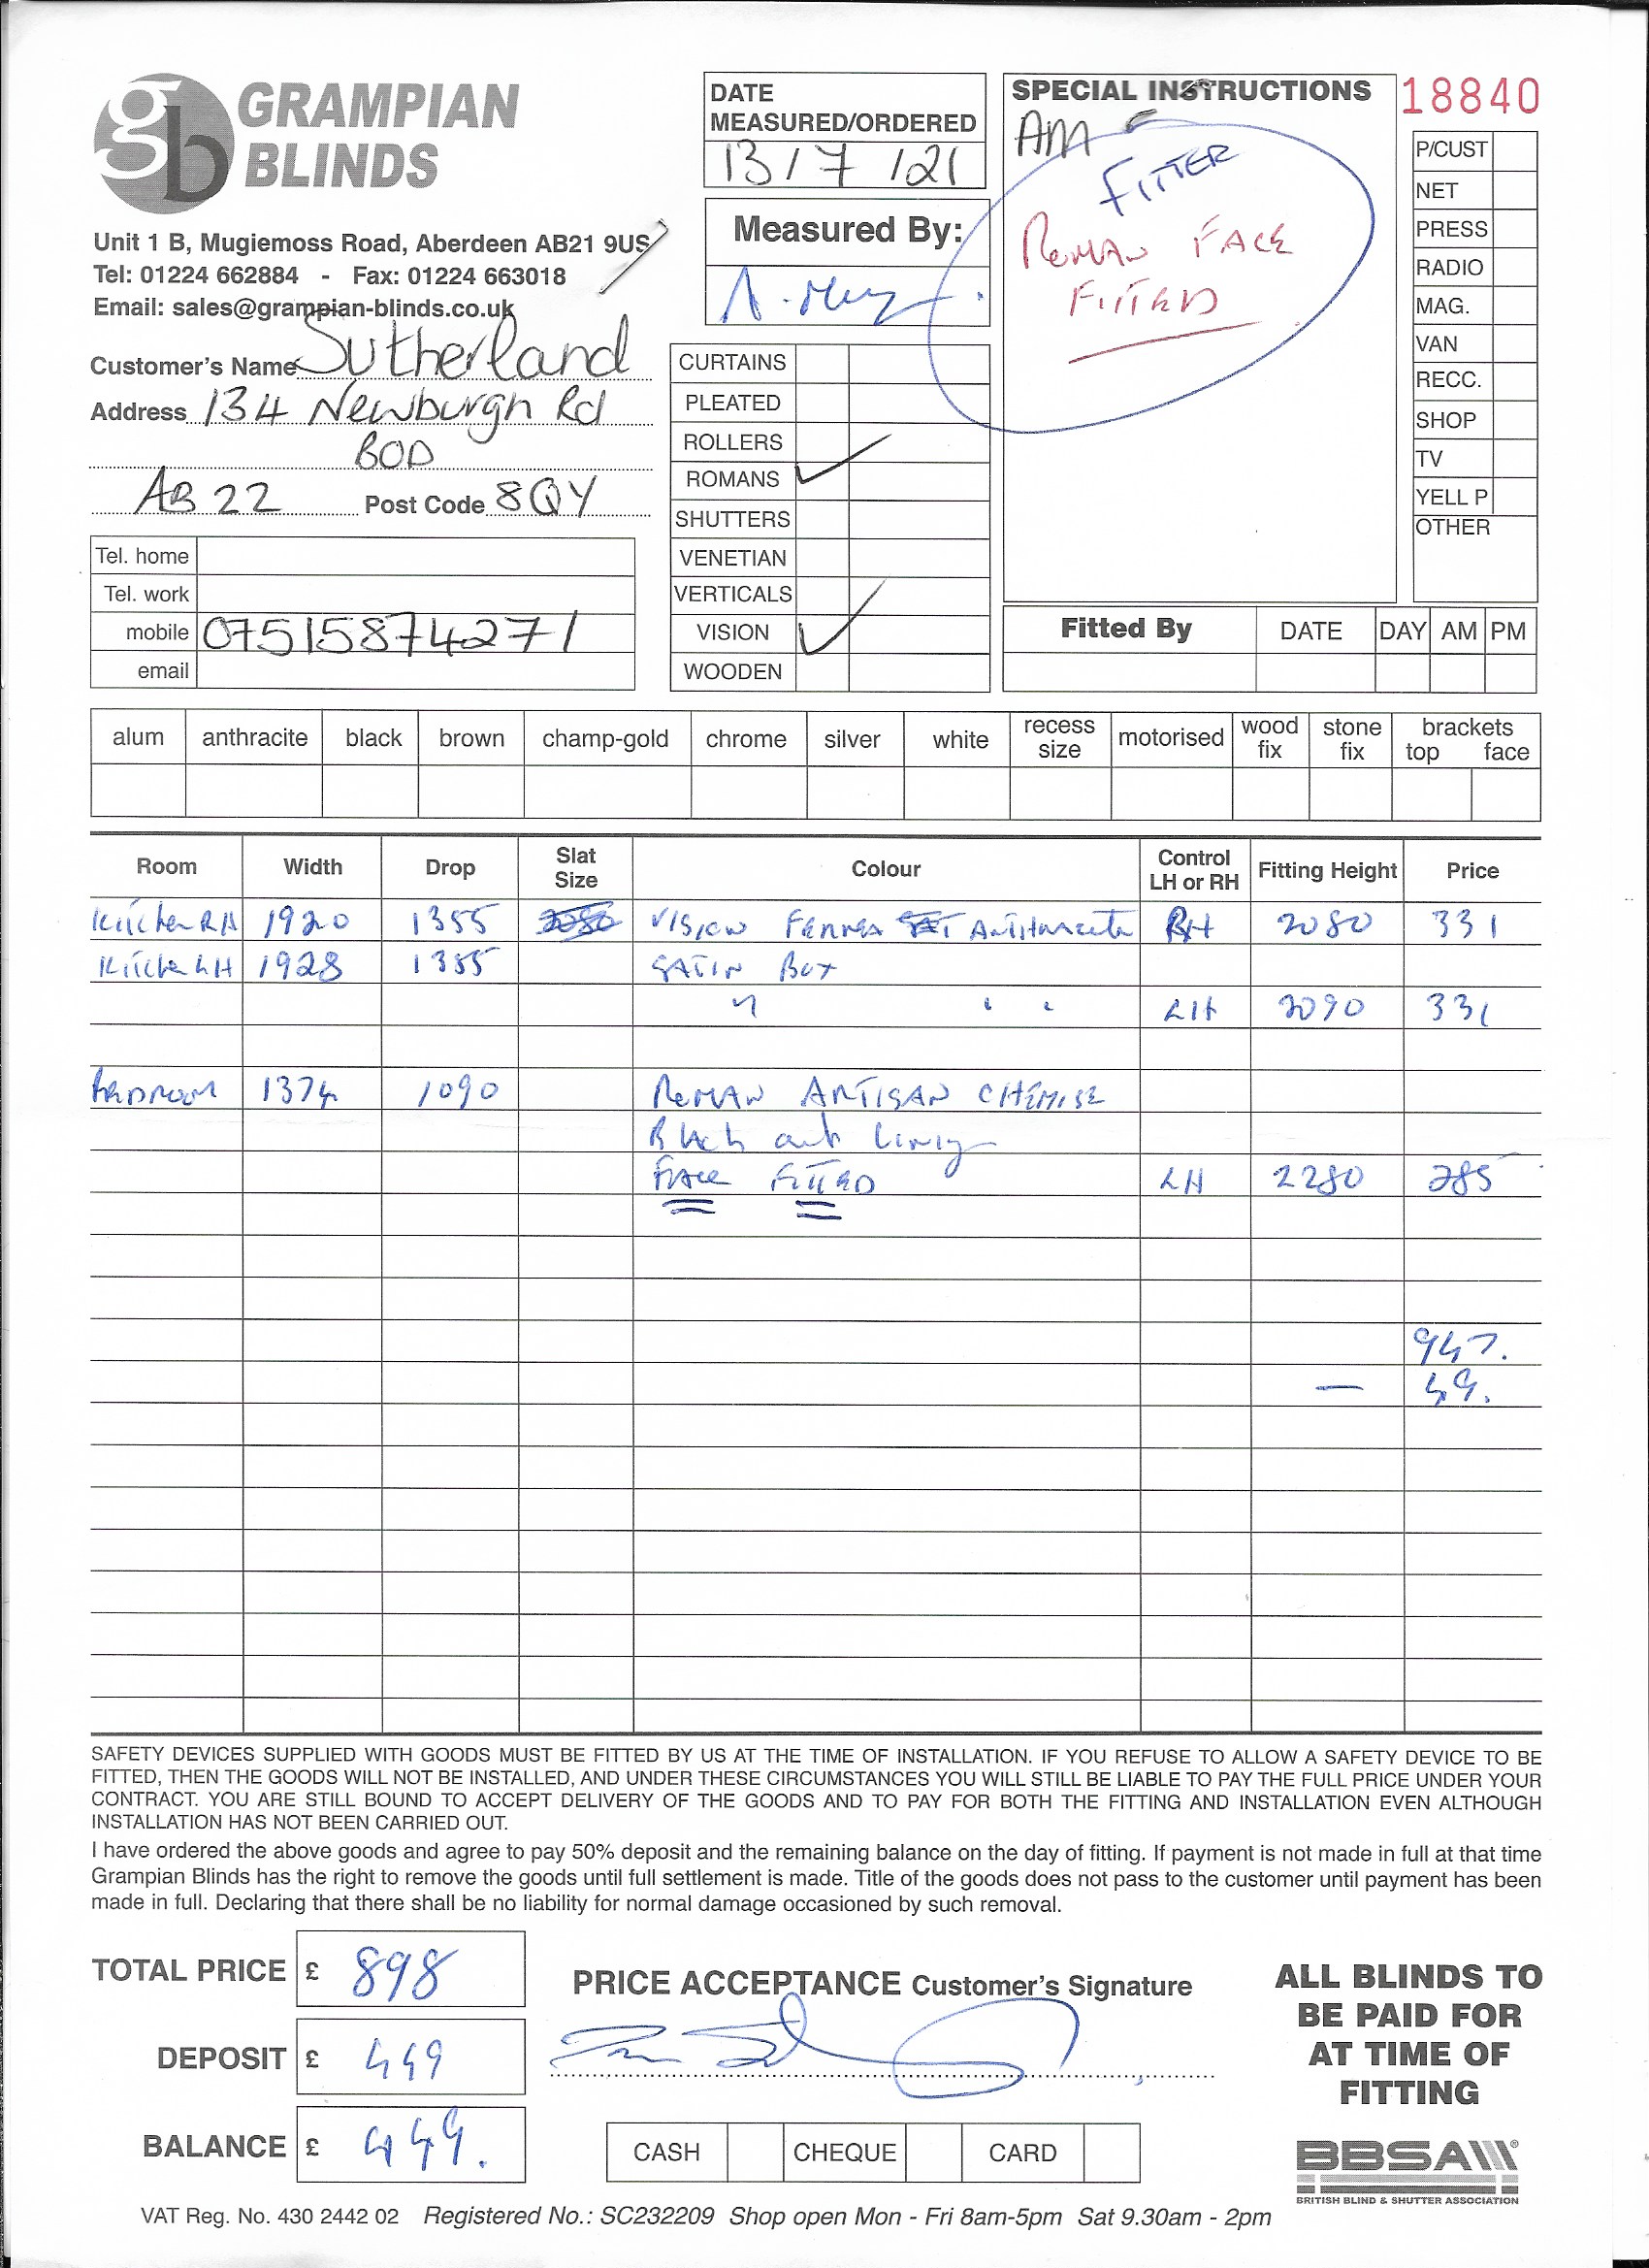 gb GRAMPIAN BLINDS
Unit 1 B, Mugiemoss Road, Aberdeen AB21 9US
Tel: 01224 662884 - Fax: 01224 663018
Email: sales@grampian-blinds.co.uk
Customer's Name Sutherland
Address 134 Newburgh Rd
BOD
AB22 Post Code 8QY
Tel. home
Tel. work
mobile 07515874271
email
DATE
MEASURED/ORDERED
13/7/21
Measured By:
CURTAINS
PLEATED
ROLLERS
ROMANS ✓
SHUTTERS
VENETIAN
VERTICALS
VISION ✓
WOODEN
SPECIAL INSTRUCTIONS
AM
FITTER
ROMAN FACE
FITTED
18840
P/CUST
NET
PRESS
RADIO
MAG.
VAN
RECC.
SHOP
TV
YELL P
OTHER
Fitted By DATE DAY AM PM
alum anthracite black brown champ-gold chrome silver white recess size motorised wood fix stone fix brackets top face
Room Width Drop Slat Size Colour Control LH or RH Fitting Height Price
Kitchen RH 1920 1355 VISION Anthracite RH 2080 331
Kitchen LH 1928 1355 SATIN BOX
" " " LH 2090 331
BEDROOM 1374 1090 ROMAN ARTISAN CHEMISE
Black out Lining
FACE FITTED LH 2280 285
947.
— 49.
SAFETY DEVICES SUPPLIED WITH GOODS MUST BE FITTED BY US AT THE TIME OF INSTALLATION. IF YOU REFUSE TO ALLOW A SAFETY DEVICE TO BE
FITTED, THEN THE GOODS WILL NOT BE INSTALLED, AND UNDER THESE CIRCUMSTANCES YOU WILL STILL BE LIABLE TO PAY THE FULL PRICE UNDER YOUR
CONTRACT. YOU ARE STILL BOUND TO ACCEPT DELIVERY OF THE GOODS AND TO PAY FOR BOTH THE FITTING AND INSTALLATION EVEN ALTHOUGH
INSTALLATION HAS NOT BEEN CARRIED OUT.
I have ordered the above goods and agree to pay 50% deposit and the remaining balance on the day of fitting. If payment is not made in full at that time
Grampian Blinds has the right to remove the goods until full settlement is made. Title of the goods does not pass to the customer until payment has been
made in full. Declaring that there shall be no liability for normal damage occasioned by such removal.
TOTAL PRICE £ 898
DEPOSIT £ 449
BALANCE £ 449.
PRICE ACCEPTANCE Customer's Signature
CASH CHEQUE CARD
ALL BLINDS TO
BE PAID FOR
AT TIME OF
FITTING
BBSA
BRITISH BLIND & SHUTTER ASSOCIATION
VAT Reg. No. 430 2442 02 Registered No.: SC232209 Shop open Mon - Fri 8am-5pm Sat 9.30am - 2pm